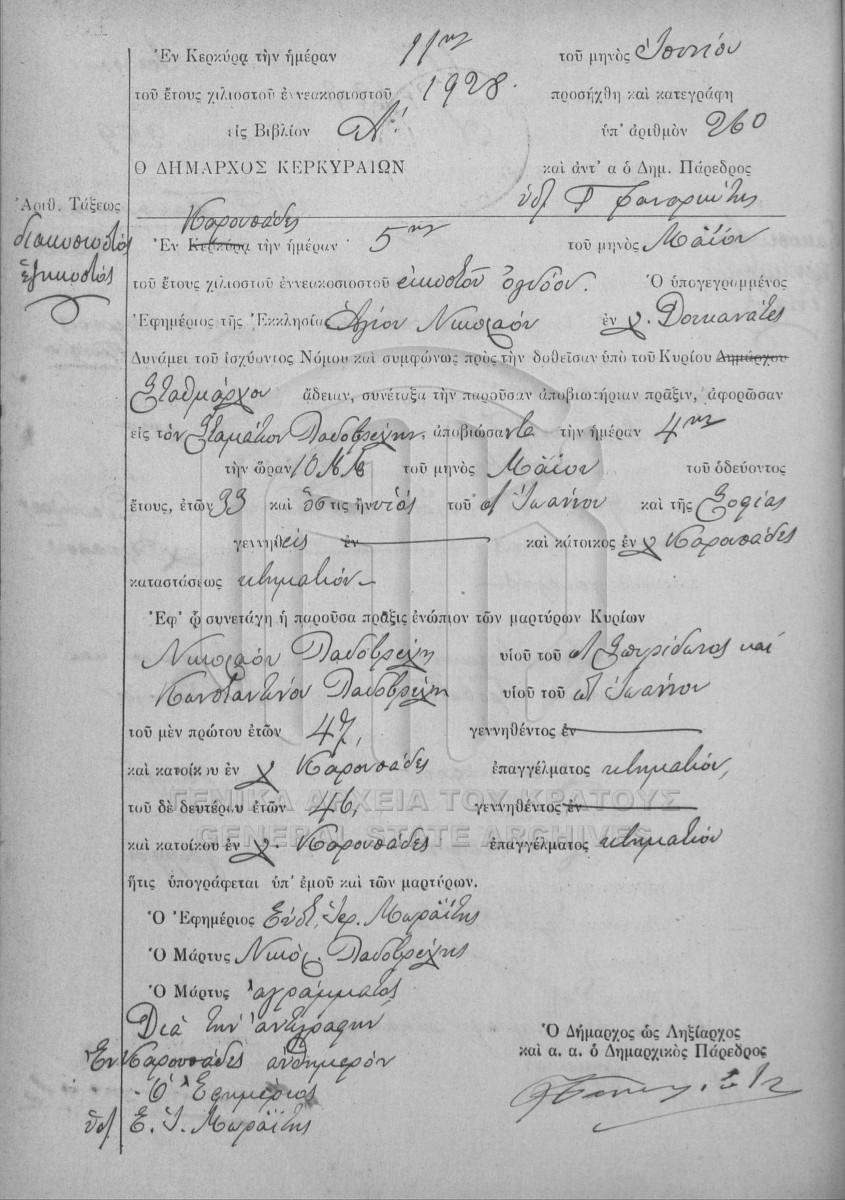 Ἐν Κερκύρᾳ τὴν ἡμέραν 11ην τοῦ μηνὸς Ἰουνίου
τοῦ ἔτους χιλιοστοῦ ἐννεακοσιοστοῦ 1928. προσήχθη καὶ κατεγράφη
εἰς Βιβλίον Α! ὑπ' ἀριθμὸν 260
Ὁ ΔΗΜΑΡΧΟΣ ΚΕΡΚΥΡΑΙΩΝ καὶ ἀντ' α ὁ Δημ. Πάρεδρος
Ἀριθ. Τάξεως
διακοσιοστός
ἑξηκοστός
Καρουσάδες
Ἐν Κερκύρᾳ τὴν ἡμέραν 5ην τοῦ μηνὸς Μαΐου
τοῦ ἔτους χιλιοστοῦ ἐννεακοσιοστοῦ εἰκοστοῦ ὀγδόου. Ὁ ὑπογεγραμμένος
Ἐφημέριος τῆς Ἐκκλησία Ἁγίου Νικολάου ἐν χ.
Δυνάμει τοῦ ἰσχύοντος Νόμου καὶ συμφώνως πρὸς τὴν δοθεῖσαν ὑπὸ τοῦ Κυρίου Δημάρχου
Σταθμάρχου ἄδειαν, συνέταξα τὴν παροῦσαν ἀποβιωτήριαν πρᾶξιν, ἀφορῶσαν
εἰς τὸν Σταμάτιον, ἀποβιώσαντα τὴν ἡμέραν 4ην
τὴν ὥραν 10 τοῦ μηνὸς Μαΐου τοῦ ὁδεύοντος
ἔτους, ἐτῶν 33 καὶ ὅστις ἦν υἱός τοῦ Ἰωάννου καὶ τῆς Σοφίας
γεννηθείς ἐν καὶ κάτοικος ἐν χ Καρουσάδες
καταστάσεως κτηματίου
Ἐφ' ᾧ συνετάγη ἡ παροῦσα πρᾶξις ἐνώπιον τῶν μαρτύρων Κυρίων
Νικολάου υἱοῦ τοῦ Σπυρίδωνος καὶ
Κωνσταντίνου υἱοῦ τοῦ Ἰωάννου
τοῦ μὲν πρώτου ἐτῶν 47, γεννηθέντος ἐν
καὶ κατοίκου ἐν χ Καρουσάδες ἐπαγγέλματος κτηματίου,
τοῦ δὲ δευτέρου ἐτῶν 46, γεννηθέντος ἐν
καὶ κατοίκου ἐν χ. Καρουσάδες ἐπαγγέλματος κτηματίου
ἥτις ὑπογράφεται ὑπ' ἐμοῦ καὶ τῶν μαρτύρων.
Ὁ Ἐφημέριος Ἱερ. Μωραΐτης
Ὁ Μάρτυς Νικόλ.
Ὁ Μάρτυς ἀγράμματος
Διὰ τὴν ἀντιγραφήν
Ἐν Καρουσάδες αὐθημερόν
Ὁ Ἐφημέριος
Ε. Ἰ. Μωραΐτης
Ὁ Δήμαρχος ὡς Ληξίαρχος
καὶ α. α. ὁ Δημαρχικὸς Πάρεδρος
ΓΕΝΙΚΑ ΑΡΧΕΙΑ ΤΟΥ ΚΡΑΤΟΥΣ
GENERAL STATE ARCHIVES